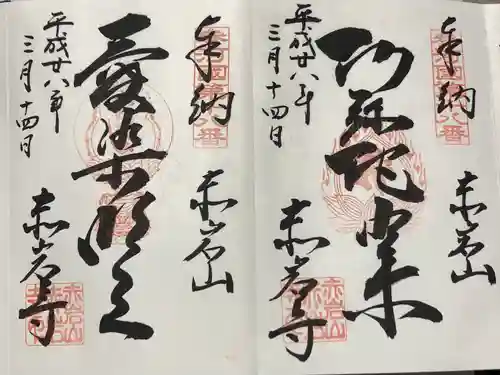 奉納
赤岩山
阿弥陀如来
赤岩寺
平成廿八年
三月十四日
奉納
赤岩山
愛染明王
赤岩寺
平成廿八年
三月十四日